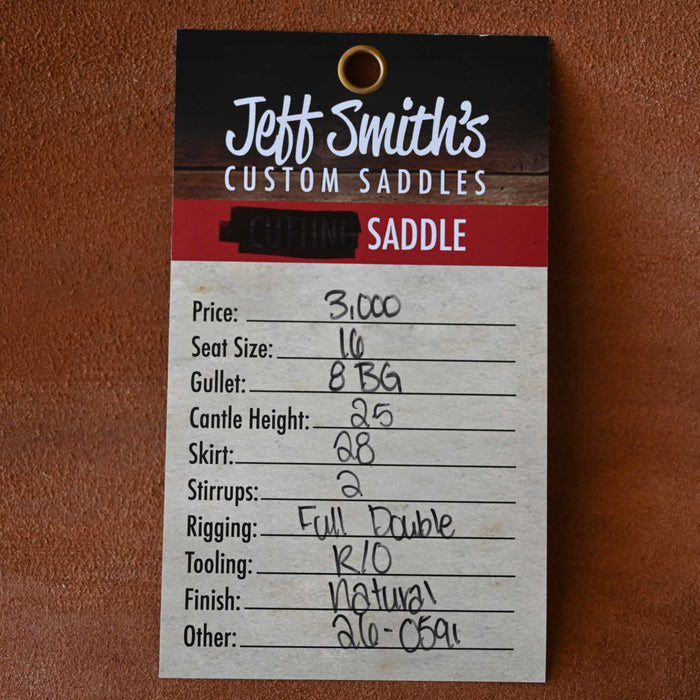 Jeff Smith's
CUSTOM SADDLES
CUTTING SADDLE
Price: 3,000
Seat Size: 16
Gullet: 8 BG
Cantle Height: 25
Skirt: 28
Stirrups: 2
Rigging: Full Double
Tooling: R/O
Finish: Natural
Other: 26-0591